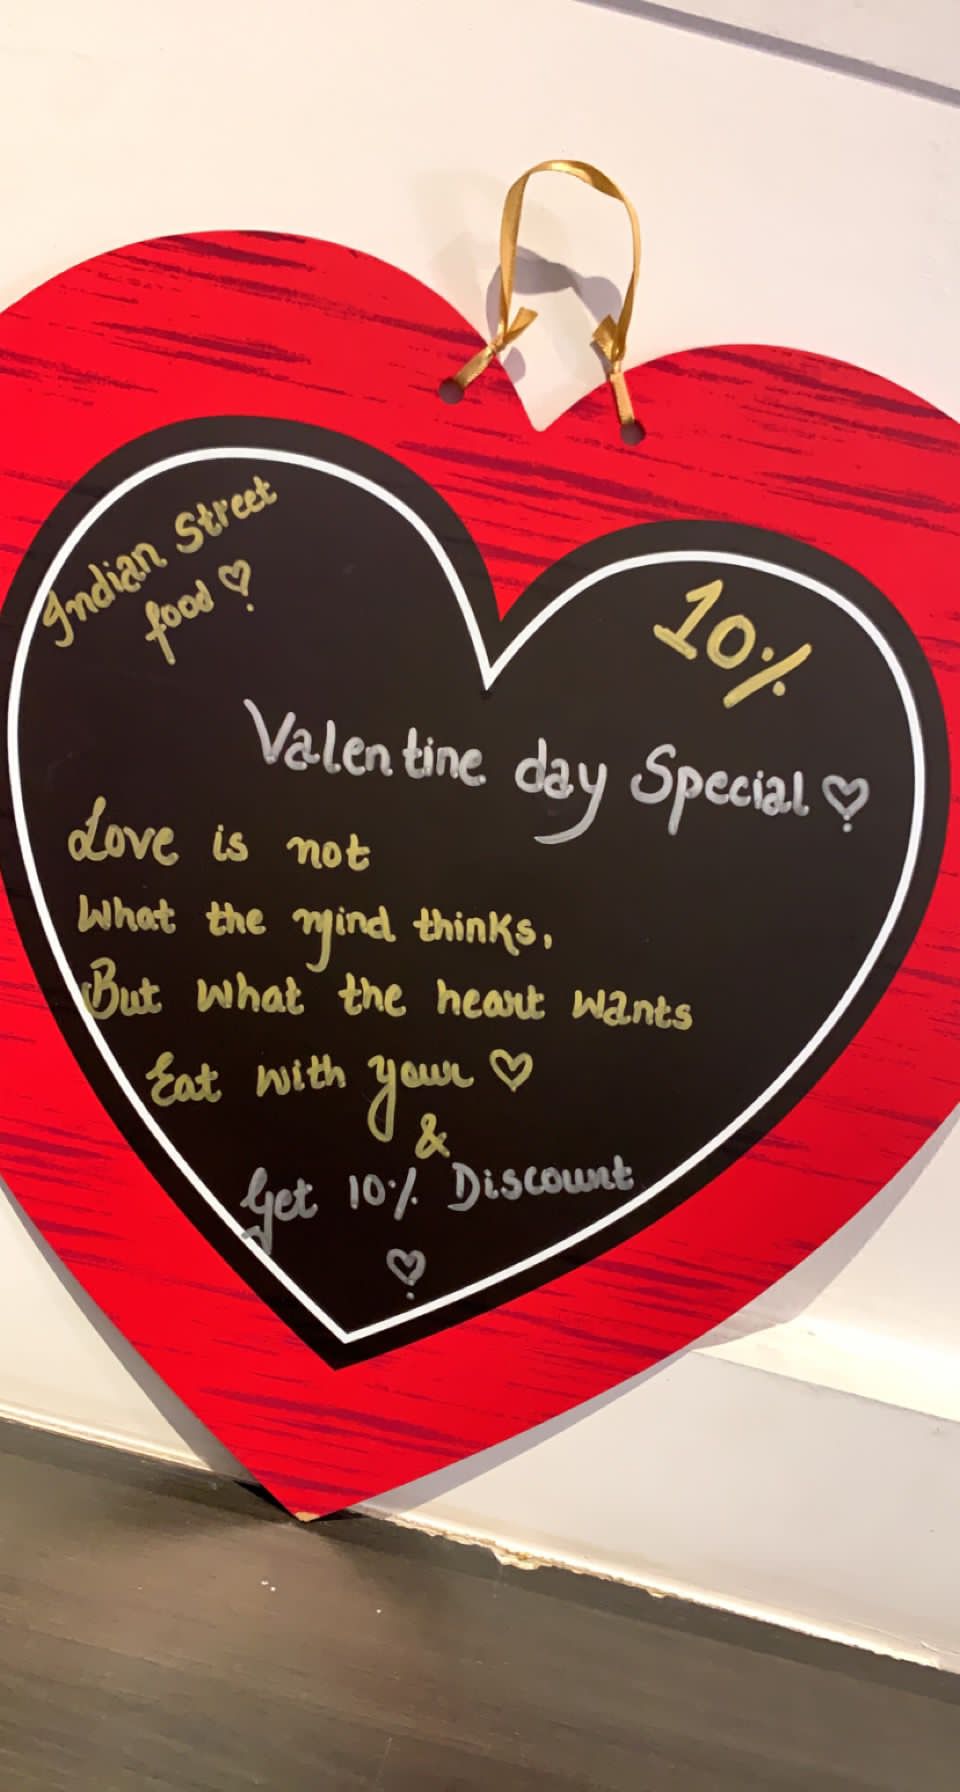 Indian Street
food ♡
10%
Valentine day Special ♡
Love is not
What the mind thinks,
But what the heart wants
Eat with your ♡
&
Get 10% Discount
♡